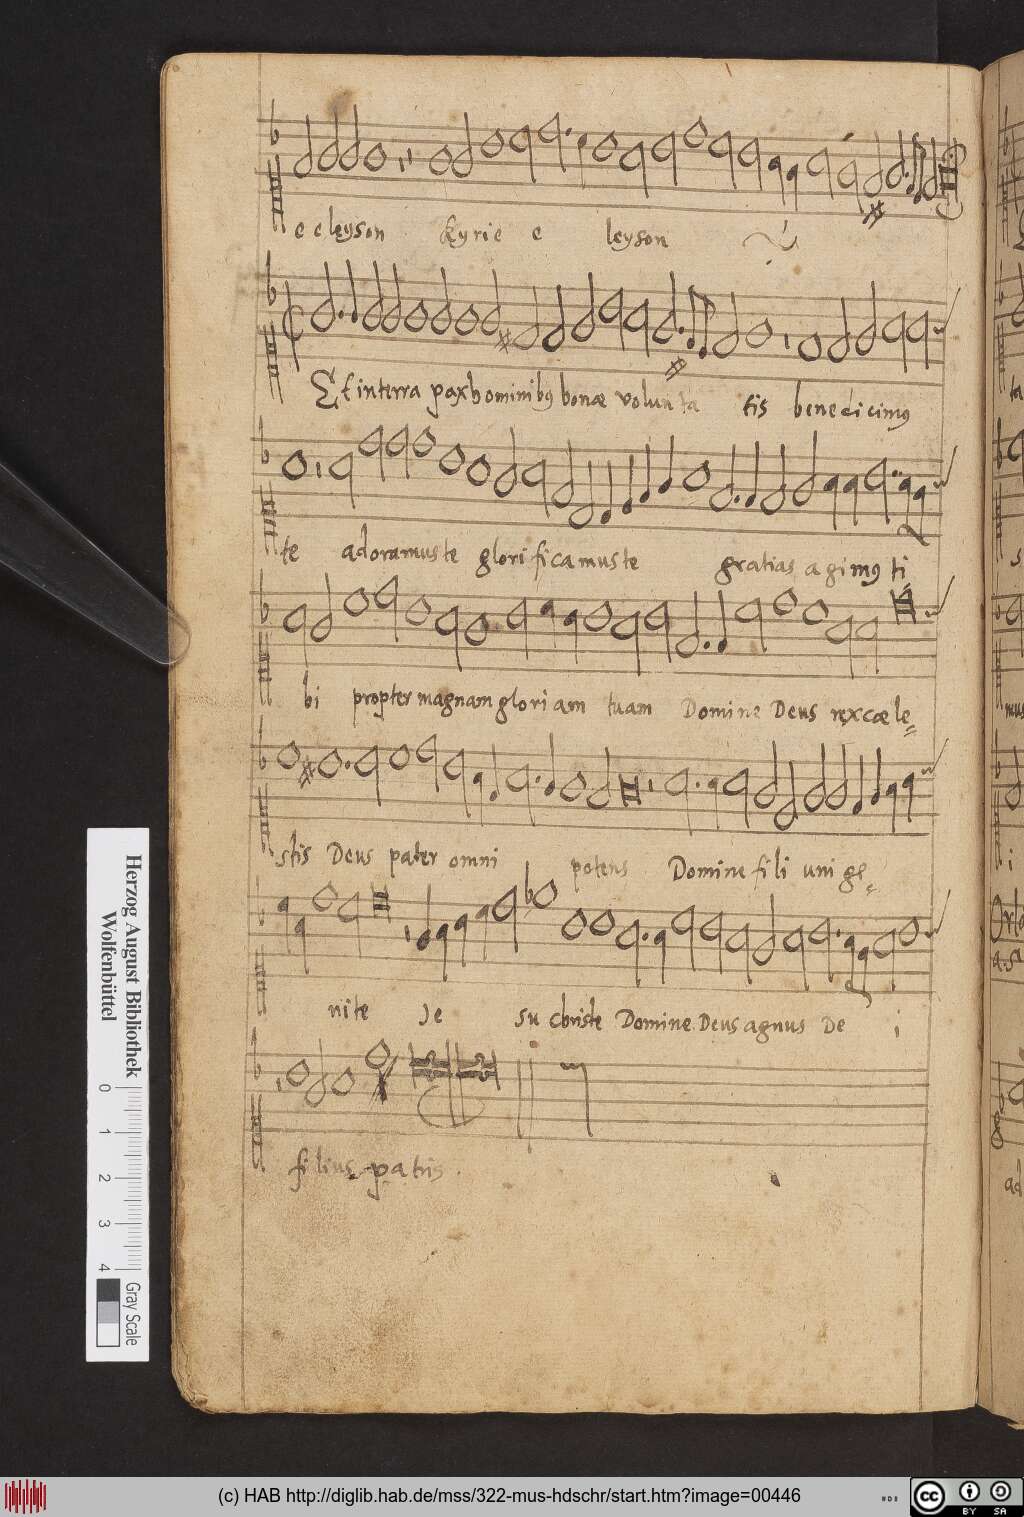 e eleyson Kyrie e leyson
Et in terra pax hominibꝰ bonæ volunta tis benedicimꝰ
te adoramus te glorificamus te gratias agimꝰ ti
bi propter magnam gloriam tuam Domine Deus rex cæle=
stis Deus pater omni potens Domine fili unige=
nite Je su christe Domine Deus agnus De i
filius patris.
Herzog August Bibliothek
Wolfenbüttel
0 1 2 3 4
Gray Scale
(c) HAB http://diglib.hab.de/mss/322-mus-hdschr/start.htm?image=00446
HAB
cc BY SA